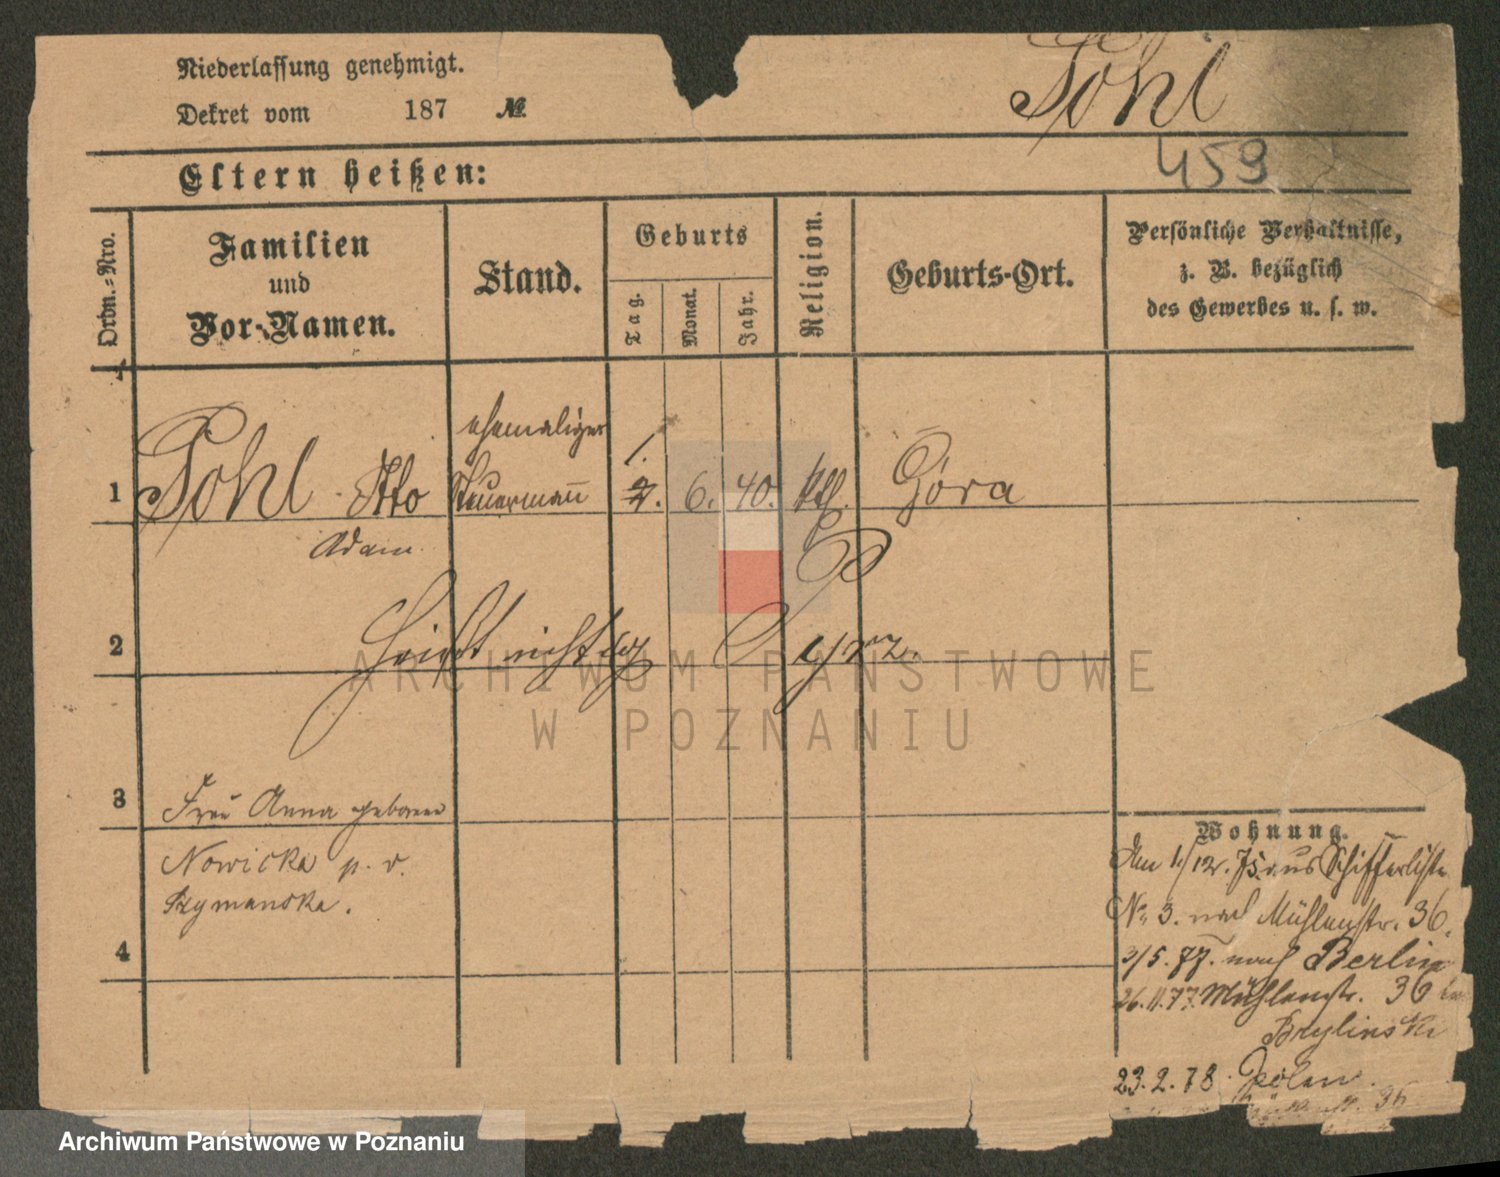 Niederlassung genehmigt.
Dekret vom 187 №
Pohl
459
Eltern heißen:
Ordn.-Nro.
Familien
und
Vor-Namen.
Stand.
Geburts
Tag.
Monat.
Jahr.
Religion.
Geburts-Ort.
Persönliche Verhältnisse,
z. B. bezüglich
des Gewerbes u. s. w.
ehemaliger
1 Pohl Otto Steuermann 2. 1. 6. 40. kth. Góra
Adam
2 heißt nicht
3 Frau Anna geborene
Nowicka p. v.
Szymanska.
4
Wohnung.
Am 1./12. 75. aus Schifferliste
No 3. nach Mühlenstr. 36.
3/5. 77. nach Berlin
26.11.77. Mühlenstr. 36 bei
Brylinski
23.2.78. Polen.
36
ARCHIWUM PAŃSTWOWE
W POZNANIU
Archiwum Państwowe w Poznaniu